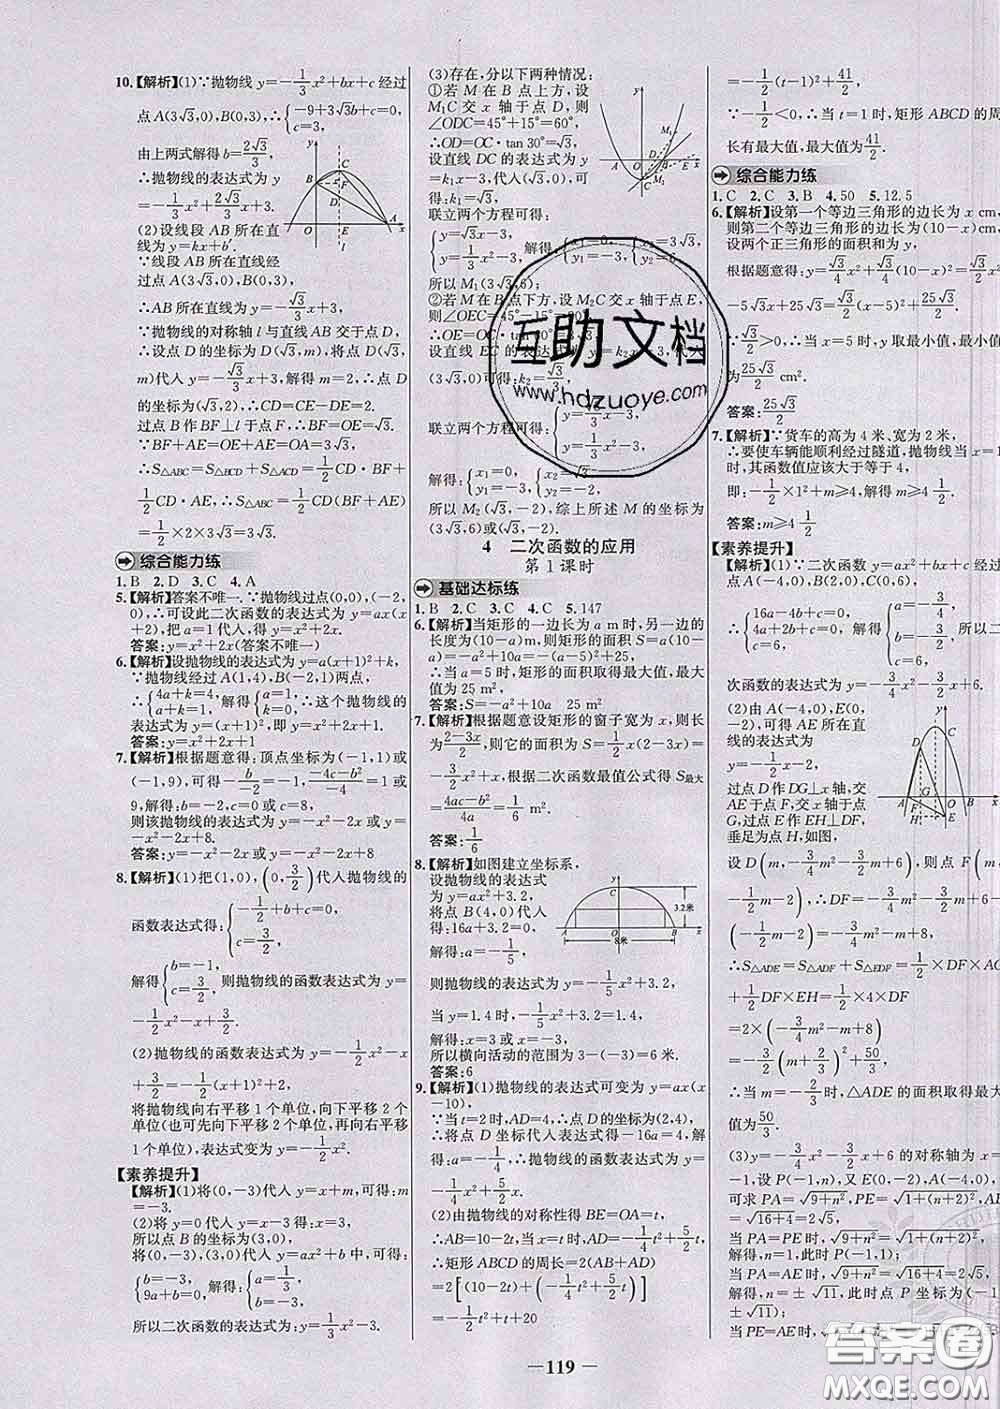 10.【解析】(1)∵抛物线 y=-1/3x²+bx+c 经过
点A(3√3,0),B(0,3),∴{-9+3√3b+c=0, c=3,
由上两式解得 b=2√3/3.
∴抛物线的表达式为 y
=-1/3x²+2√3/3x+3.
(2)设线段 AB 所在直
线为 y=kx+b′.
∵线段 AB 所在直线经
过点 A(3√3,0),B(0,3),
∴AB 所在直线为 y=-√3/3x+3,
∵抛物线的对称轴 l 与直线 AB 交于点 D,
∴设点 D 的坐标为 D(√3,m),将点 D(√3,
m)代入 y=-√3/3x+3,解得 m=2,∴点 D
的坐标为(√3,2),∴CD=CE-DE=2.
过点 B 作 BF⊥l 于点 F,∴BF=OE=√3.
∵BF+AE=OE+AE=OA=3√3,
∴S△ABC=S△BCD+S△ACD=1/2CD·BF+
1/2CD·AE,∴S△ABC=1/2CD(BF+AE)
=1/2×2×3√3=3√3.
综合能力练
1.B 2.D 3.C 4.A
5.【解析】答案不唯一.∵抛物线过点(0,0),(-2,
0),∴可设此二次函数的表达式为 y=ax(x
+2),把 a=1代入,得 y=x²+2x.
答案:y=x²+2x(答案不唯一)
6.【解析】设抛物线的表达式为 y=a(x+1)²+k,
∵抛物线经过 A(1,4),B(-2,1)两点,
∴{4a+k=4, a+k=1, 解得{a=1, k=0, ∴这个抛物线的
表达式为 y=(x+1)²,即 y=x²+2x+1.
答案:y=x²+2x+1
7.【解析】根据题意得:顶点坐标为(-1,1)或
(-1,9),可得 -b/-2=-1,-4c-b²/-4=1或
9,解得:b=-2,c=0 或 c=8,
则该抛物线的表达式为 y=-x²-2x 或
y=-x²-2x+8.
答案:y=-x²-2x 或 y=-x²-2x+8
8.【解析】(1)把(1,0),(0,3/2)代入抛物线的
函数表达式得:{-1/2+b+c=0, c=3/2,
解得{b=-1, c=3/2, 则抛物线的函数表达式为 y=
-1/2x²-x+3/2.
(2)抛物线的函数表达式为 y=-1/2x²-x
+3/2=-1/2(x+1)²+2,
将抛物线向右平移 1 个单位,向下平移 2 个
单位(也可先向下平移 2 个单位,再向右平移
1个单位),表达式变为 y=-1/2x².
【素养提升】
【解析】(1)将(0,-3)代入 y=x+m,可得:m
=-3.
(2)将 y=0 代入 y=x-3 得:x=3,
所以点 B 的坐标为(3,0),
将(0,-3),(3,0)代入 y=ax²+b 中,可得:
{b=-3, 9a+b=0, 解得:{a=1/3, b=-3,
所以二次函数的表达式为:y=1/3x²-3.
(3)存在,分以下两种情况:
①若 M 在 B 点上方,设
M₁C交 x 轴于点 D,则
∠ODC=45°+15°=60°,
∴OD=OC·tan 30°=√3.
设直线 DC 的表达式为
y=k₁x-3,代入(√3,0)可得:k₁=√3,
联立两个方程可得:
{y=√3x-3, y=1/3x²-3, 解得:{x₁=0, y₁=-3, {x₂=3√3, y₂=6,
所以 M₁(3√3,6);
②若 M 在 B 点下方,设 M₂C交 x 轴于点 E,
则∠OEC=45°-15°=30°,
∴OE=OC·
设直线 EC 的表达式为 y=k₂x-3,代入
(3√3,0)可得:k₂=√3/3,
联立两个方程可得:{y=√3/3x-3, y=1/3x²-3,
解得:{x₁=0, y₁=-3, {x₂=√3, y₂=-2,
所以 M₂(√3,-2),综上所述 M 的坐标为
(3√3,6)或(√3,-2).
4 二次函数的应用
第 1 课时
基础达标练
1.B 2.C 3.C 4.C 5.147
6.【解析】当矩形的一边长为 a m 时,另一边的
长度为(10-a)m,则矩形的面积 S=a(10
-a)=-a²+10a=-(a-5)²+25,
∴当 a=5 时,矩形的面积取得最大值,最大
值为 25 m².
答案:S=-a²+10a 25 m²
7.【解析】根据题意设矩形的窗子宽为 x,则长
为2-3x/2,则它的面积 S=1/2x(2-3x)=-
3/2x²+x,根据二次函数最值公式得 S最大
=4ac-b²/4a=1/6 m².
答案:1/6
8.【解析】如图建立坐标系,
设抛物线的表达式
为 y=ax²+3.2,
将点 B(4,0)代入
得:16a+3.2=0,
解得:a=-1/5,
则抛物线的表达式为 y=-1/5x²+3.2,
当 y=1.4 时,-1/5x²+3.2=1.4,
解得:x=3 或 x=-3,
所以横向活动的范围为 3-(-3)=6 米.
答案:6
9.【解析】(1)抛物线的表达式可变为 y=ax(x
-10),
∵当 t=2 时,AD=4,∴点 D 的坐标为(2,4),
∴将点 D 坐标代入表达式得-16a=4,解得:
a=-1/4,∴抛物线的表达式为 y=-1/4x²+
5/2x.
(2)由抛物线的对称性得 BE=OA=t,
∴AB=10-2t,当 x=t 时,AD=-1/4t²+5/2t,
∴矩形 ABCD 的周长=2(AB+AD)
=2[(10-2t)+(-1/4t²+5/2t)]
=-1/2t²+t+20
=-1/2(t-1)²+41/2,
∵-1/2<0,∴当 t=1 时,矩形 ABCD 的周
长有最大值,最大值为41/2.
综合能力练
1.C 2.C 3.B 4.50 5.12.5
6.【解析】设第一个等边三角形的边长为 x cm,
则第二个等边三角形的边长为(10-x)cm,
设两个正三角形的面积和为 y,
根据题意得:y=√3/4x²+√3/4(10-x)²=√3/2x²
-5√3x+25√3=√3/2(x-5)²+25√3/2.
∵√3/2>0,∴当 x=5 时,y 取最小值,最小值
为25√3/2 cm².
答案:25√3/2
7.【解析】∵货车的高为 4 米、宽为 2 米,
∴要使车辆能顺利经过隧道,抛物线当 x=1
时,其函数值应该大于等于 4,
即:-1/2×1²+m≥4,解得:m≥4 1/2.
答案:m≥4 1/2
【素养提升】
【解析】(1)∵二次函数 y=ax²+bx+c 经过
点 A(-4,0),B(2,0),C(0,6),
∴{16a-4b+c=0, 4a+2b+c=0, c=6, 解得:
次函数的表达式为 y=-3/4x²-3/2x+6.
(2)由 A(-4,0),E(0,
-2),可得 AE所在直
线的表达式为
y=-1/2x-2,
过点D作 DG⊥x 轴,交
AE于点 F,交 x 轴于点
G,过点 E 作 EH⊥DF,
垂足为点 H,如图,
设 D(m,-3/4m²-3/2m+6),则点 F(m,-
1/2m-2),∴DF=-3/4m²-3/2m+6-
(-1/2m-2)=-3/4m²-m+8,
∴S△ADE=S△ADF+S△EDF=1/2×DF×AG
+1/2DF×EH=1/2×4×DF
=2×(-3/4m²-m+8)
=-3/2(m+2/3)²+50/3,
∴当 m=-2/3时,△ADE 的面积取得最大
值为50/3.
(3)y=-3/4x²-3/2x+6 的对称轴为 x=
-1,设 P(-1,n),又E(0,-2),A(-4,0),
可求 PA=√9+n²,PE=√1+(n+2)²,AE
=√16+4=2√5,
当 PA=PE 时,√9+n²=√1+(n+2)²,
解得,n=1,此时 P(-1,1);
当 PA=AE 时,√9+n²=√16+4=2√5,
解得,n=±√11,此时点 P 坐标为(-1,
±√11);
当 PE=AE 时,√1+(n+2)²
119
互助文档
www.hdzuoye.com
答案圈
MXQE.COM